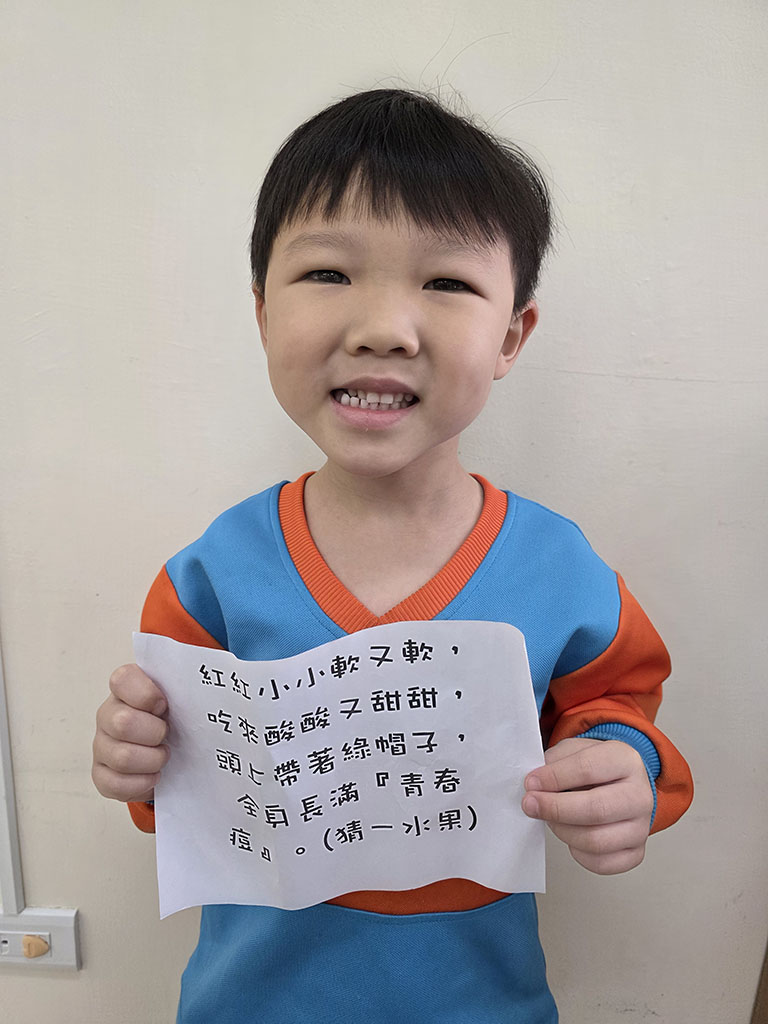 紅紅小小軟又軟，
吃來酸酸又甜甜，
頭上帶著綠帽子，
全身長滿『青春
痘』。(猜一水果)